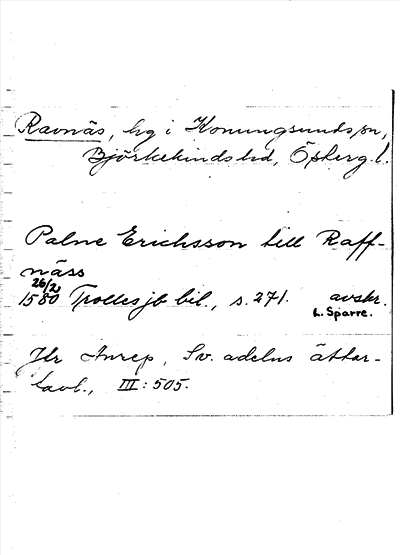 Ravnäs, hg i Konungsunds sn,
Björkekinds hd, Östergl.
Palne Erichsson till Raff-
näss
26/2
1580 Trolles jb bil., s. 271. avskr.
L. Sparre.
Jfr Anrep, Sv. adelns ättar-
tavl., III: 505.